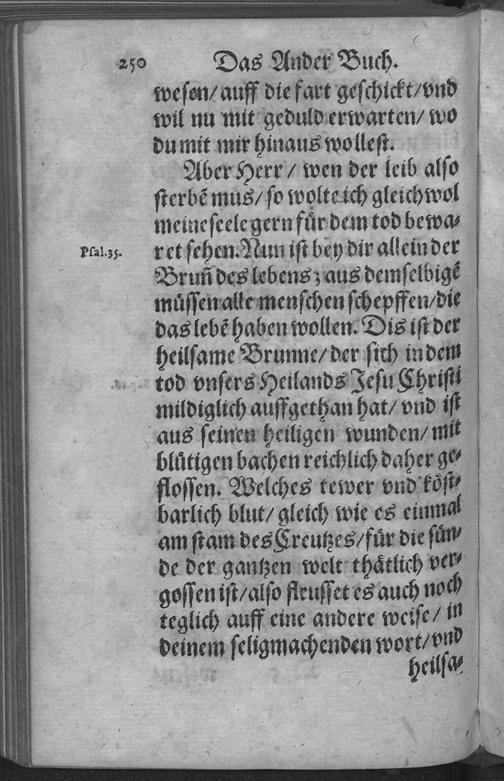 250 Das Ander Buch.
wesen/ auff die fart geschickt/ vnd
wil nu mit geduld erwarten/ wo
du mit mir hinaus wollest.
Aber Herr/ wen der leib also
sterbē mus/ so wolte ich gleichwol
meine seele gern für dem tod bewa-
Psal. 35. ret sehen. Nun ist bey dir allein der
Brun̄ des lebens; aus demselbigē
müssen alle menschen schepffen/ die
das lebē haben wollen. Dis ist der
heilsame Brunne/ der sich in dem
tod vnsers Heilands Jesu Christi
mildiglich auffgethan hat/ vnd ist
aus seinen heiligen wunden/ mit
blütigen bachen reichlich daher ge-
flossen. Welches tewer vnd köst-
barlich blut/ gleich wie es einmal
am stam des Creutzes/ für die sün-
de der gantzen welt thätlich ver-
gossen ist/ also flrusset es auch noch
teglich auff eine andere weise/ in
deinem seligmachenden wort/ vnd
heilsa-